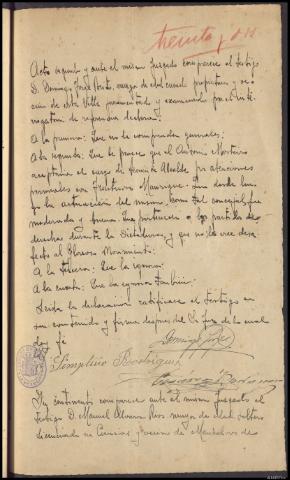 treinta y dos
Acto seguido y ante el mismo Juzgado comparece el testigo
D. Domingo Pérez Porto, mayor de edad casado propietario y ve-
cino de esta Villa juramentado y examinado por el inte-
rrogatorio de referencia declara:
A la primera: Que no le comprenden generales;
A la segunda: Que le parece que el Antonio Monteiro
aceptaría el cargo de Teniente Alcalde por atenciones
personales con Politivo Manrique. Que desde lue-
go la actuación del mismo como tal concejal, fue
moderada y buena. Que perteneció a los partidos de
derechas durante la Dictadura, y que no lo cree desa-
fecto al Glorioso Movimiento.
A la tercera: Que la ignora.
A la cuarta: Que la ignora también.
Leida la declaración ratificase el testigo en
su contenido y firma después del Sr. Juez de lo cual
doy fé
Domingo Pérez
Simplicio Rodríguez
In continenti comparece ante el mismo Juzgado el
testigo D. Manuel Alvarez Rios mayor de edad soltero
licenciado en Ciencias y vecino de